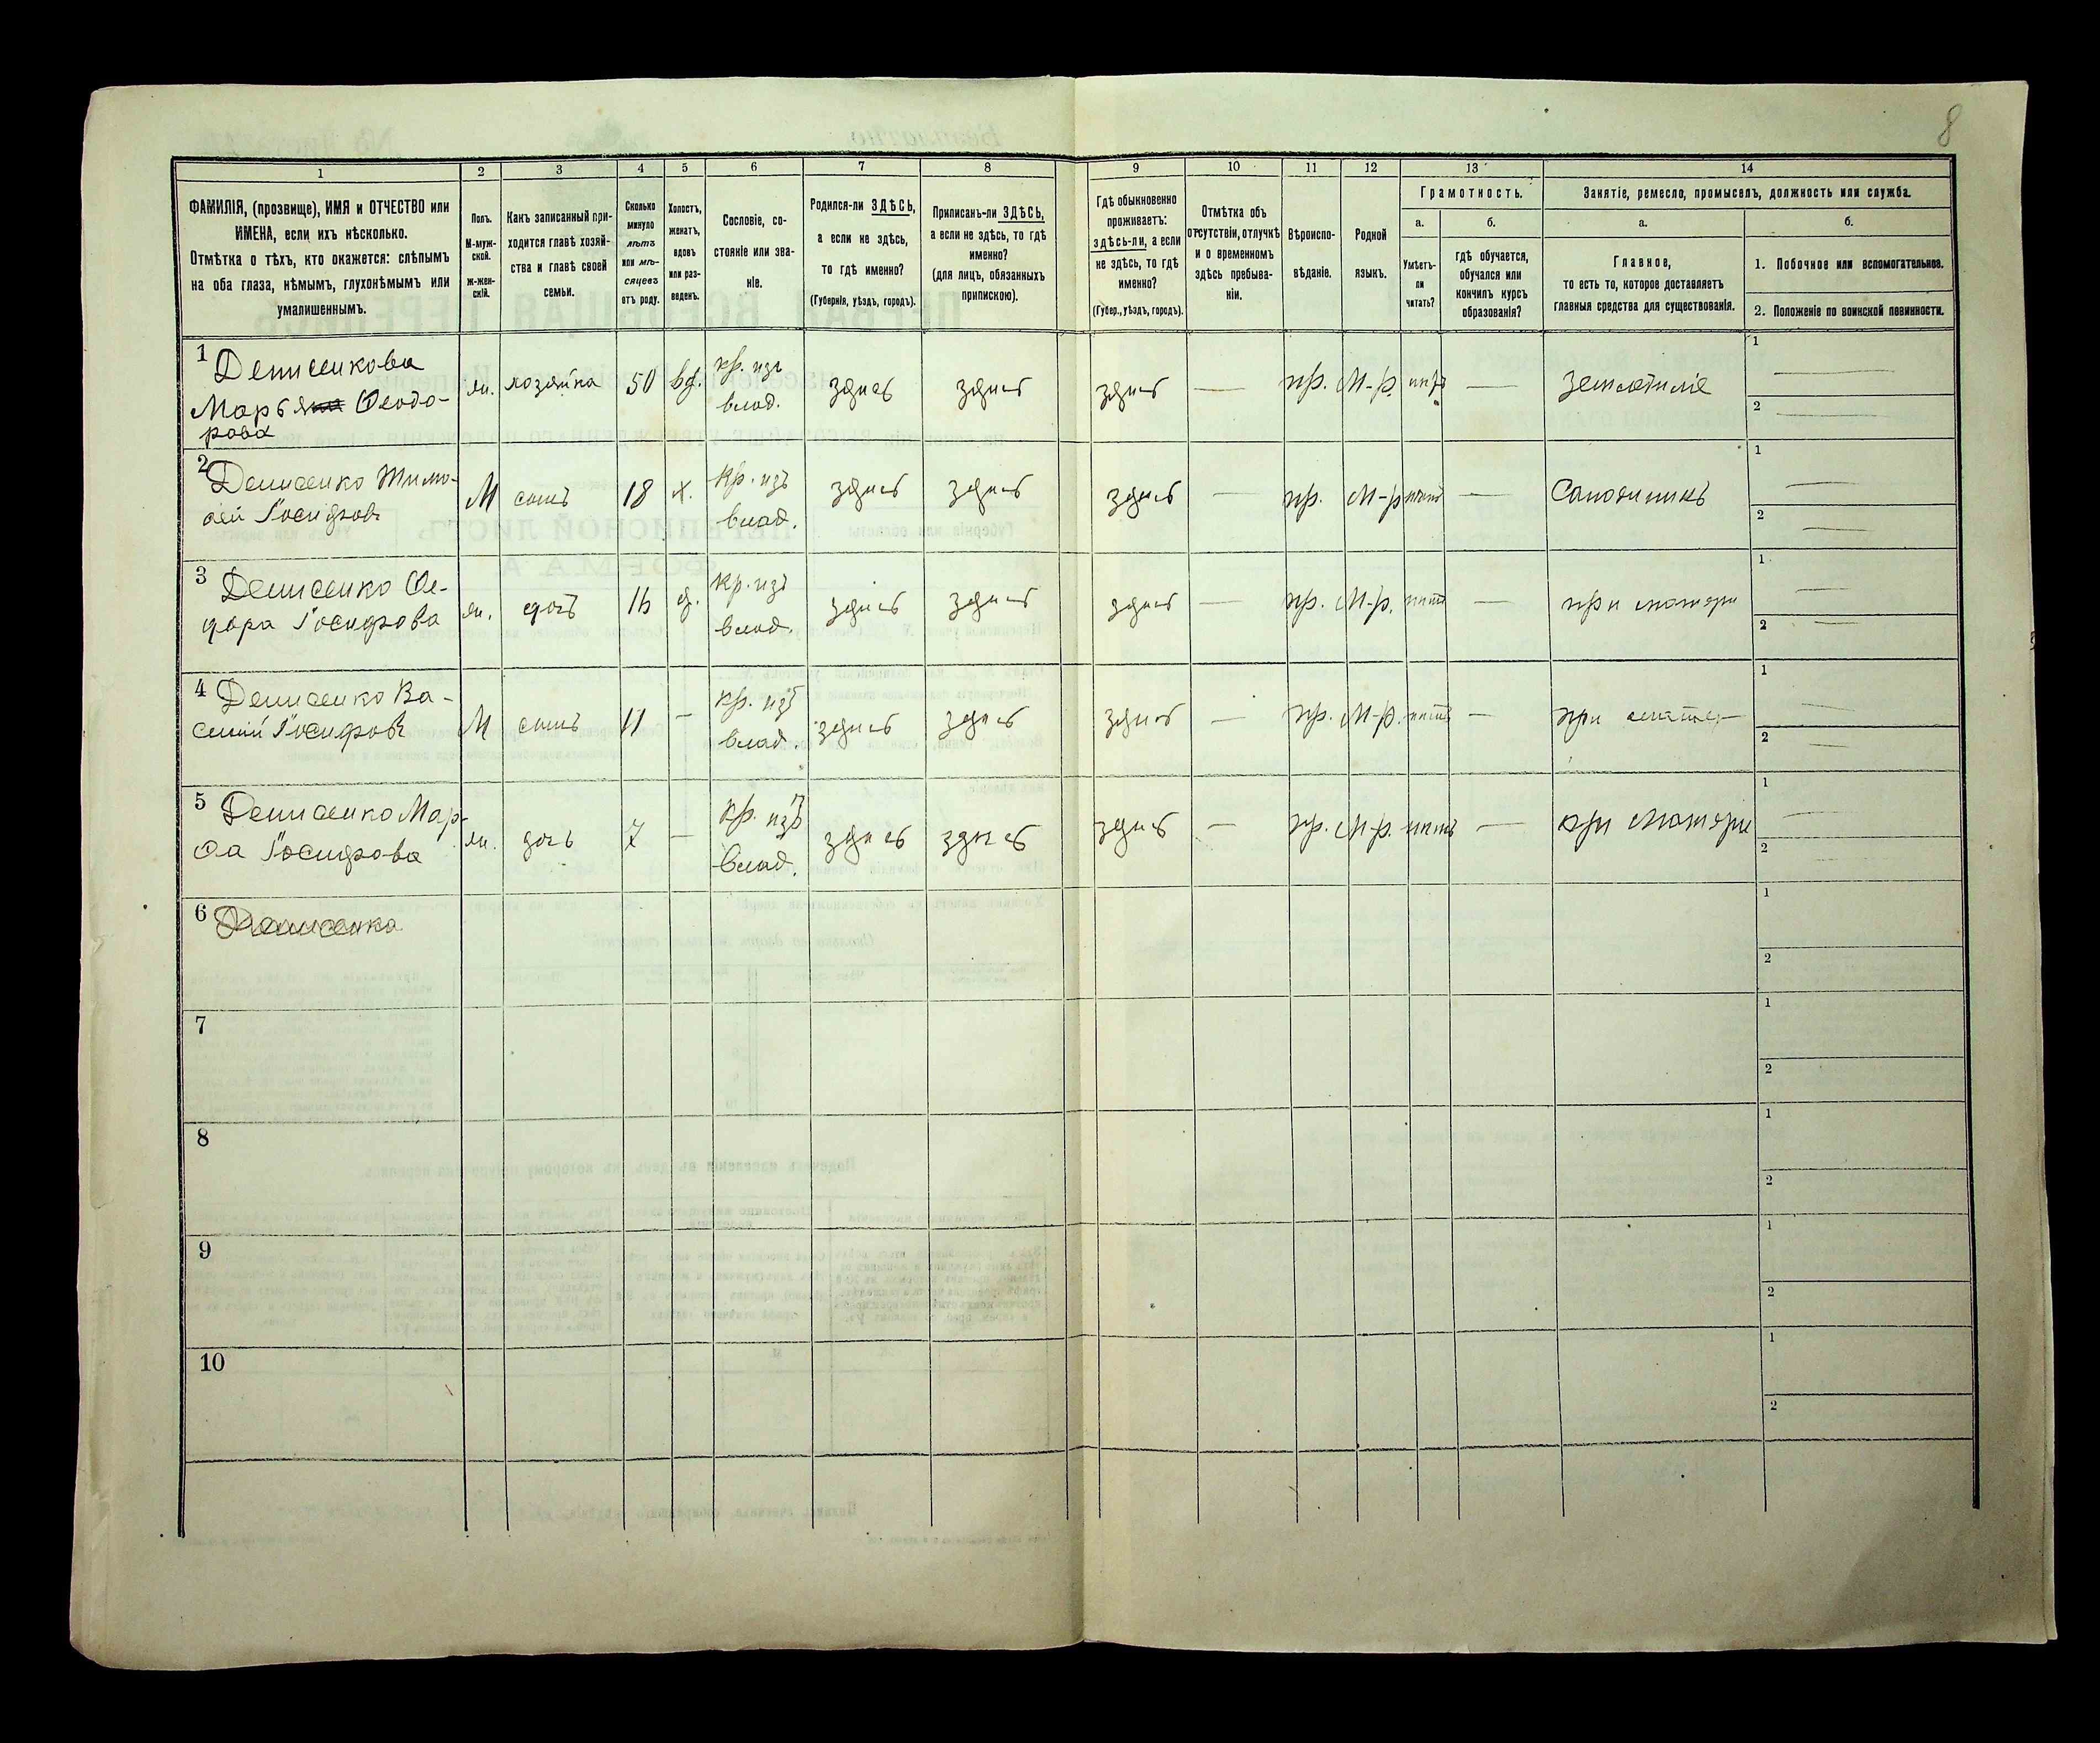 8
1 2 3 4 5 6 7 8 9 10 11 12 13 14
ФАМИЛІЯ, (прозвище), ИМЯ и ОТЧЕСТВО или
ИМЕНА, если ихъ нѣсколько.
Отмѣтка о тѣхъ, кто окажется: слѣпымъ
на оба глаза, нѣмымъ, глухонѣмымъ или
умалишеннымъ.
Полъ.
М-муж-
ской.
Ж-жен-
скій.
Какъ записанный при-
ходится главѣ хозяй-
ства и главѣ своей
семьи.
Сколько
минуло
лѣтъ
или мѣ-
сяцевъ
отъ роду.
Холостъ,
женатъ,
вдовъ
или раз-
веденъ.
Сословіе, со-
стояніе или зва-
ніе.
Родился-ли ЗДѢСЬ,
а если не здѣсь,
то гдѣ именно?
(Губернія, уѣздъ, городъ).
Приписанъ-ли ЗДѢСЬ,
а если не здѣсь, то гдѣ
именно?
(для лицъ, обязанныхъ
припискою).
Гдѣ обыкновенно
проживаетъ:
здѣсь-ли, а если
не здѣсь, то гдѣ
именно?
(Губер., уѣздъ, городъ).
Отмѣтка объ
отсутствіи, отлучкѣ
и о временномъ
здѣсь пребыва-
ніи.
Вѣроиспо-
вѣданіе.
Родной
языкъ.
Грамотность.
а.
Умѣетъ-
ли
читать?
б.
гдѣ обучается,
обучался или
кончилъ курсъ
образованія?
Занятіе, ремесло, промыселъ, должность или служба.
а.
Главное,
то есть то, которое доставляетъ
главныя средства для существованія.
б.
1. Побочное или вспомогательное.
2. Положеніе по воинской повинности.
1 Денисенкова
Марья Ѳеодо-
рова
ж. хозяйка 50 вд. кр. изъ
влад.
здѣсь здѣсь здѣсь — пр. М-р. нѣтъ — земледѣліе
1 —
2 —
2 Денисенко Тимо-
ѳей Іосифовъ
М сынъ 18 х. кр. изъ
влад.
здѣсь здѣсь здѣсь — пр. М-р нѣтъ — Сапожникъ
1 —
2 —
3 Денисенко Ѳе-
дора Іосифова
ж. дочь 16 д. кр. изъ
влад.
здѣсь здѣсь здѣсь — пр. М-р. нѣтъ — при матери
1 —
2 —
4 Денисенко Ва-
силій Іосифовъ
М сынъ 11 — кр. изъ
влад.
здѣсь здѣсь здѣсь — пр. М-р. нѣтъ — при
1 —
2 —
5 Денисенко Мар-
ѳа Іосифова
ж. дочь 7 — кр. изъ
влад.
здѣсь здѣсь здѣсь — пр. М-р. нѣтъ — при матери
1 —
2 —
6
1
2
7
1
2
8
1
2
9
1
2
10
1
2